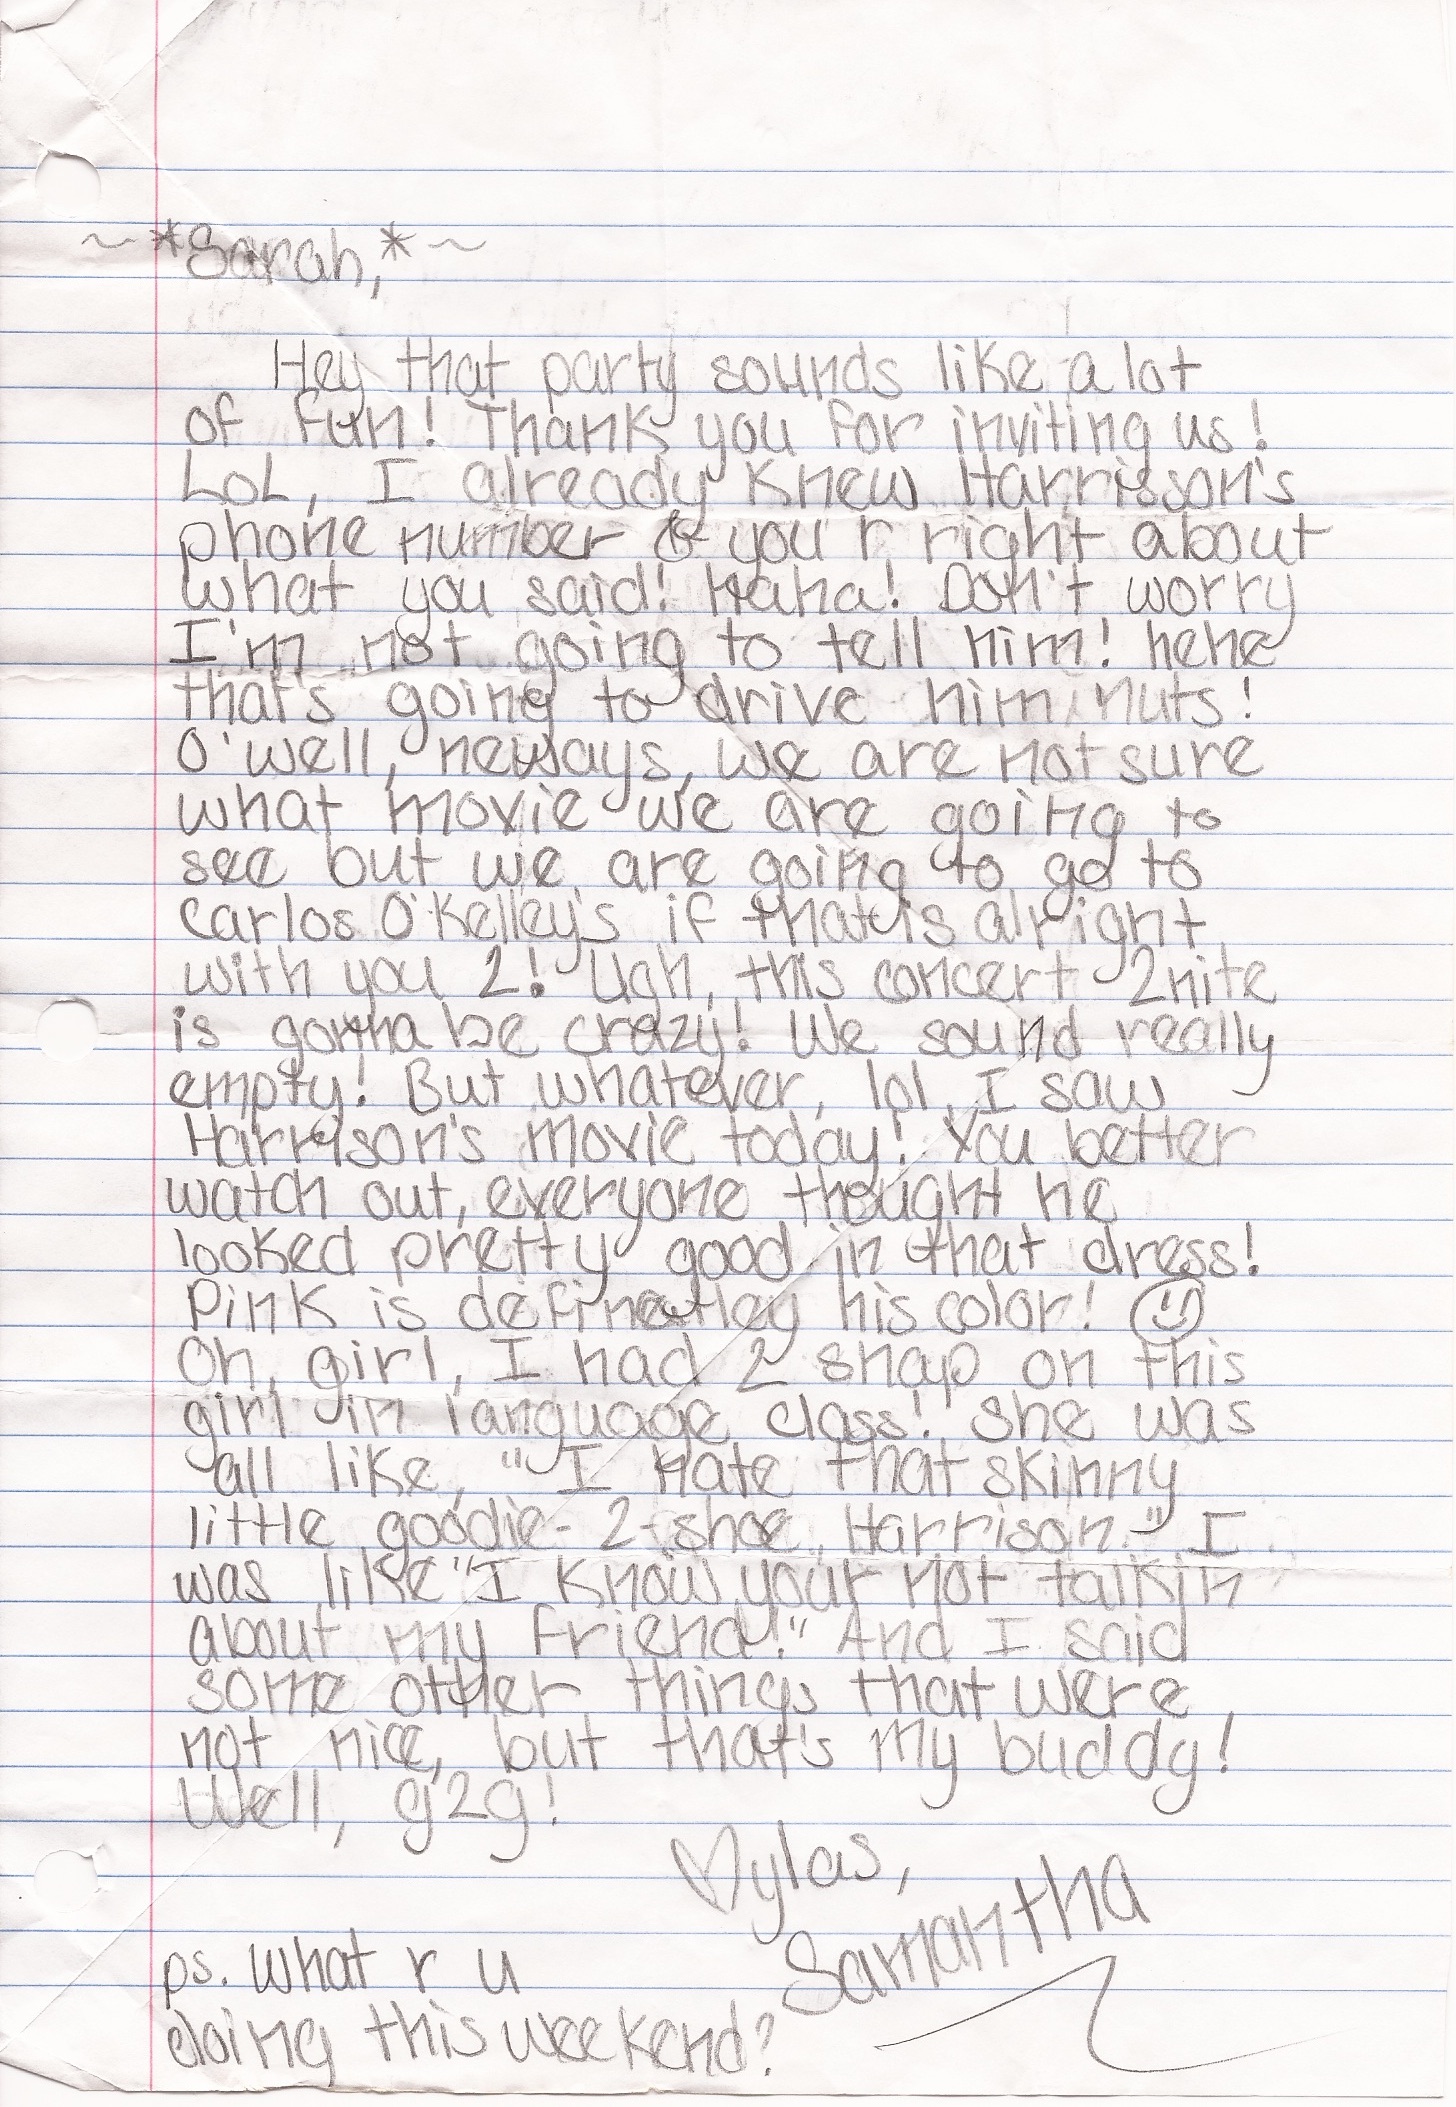 ~*Sarah,*~
Hey that party sounds like a lot
of fun! Thank you for inviting us!
LOL, I already knew Harrisson's
phone number & you r right about
what you said! Haha! Don't worry
I'm not going to tell him! hehe
that's going to drive him nuts!
O'well, neways, we are not sure
what movie we are going to
see but we are going to go to
Carlos O'Kelley's if that is alright
with you 2! Ugh, this concert 2nite
is gonna be crazy! We sound really
empty! But whatever, lol, I saw
Harrison's movie today! You better
watch out, everyone thought he
looked pretty good in that dress!
Pink is definatley his color! ☺
Oh, girl, I had 2 snap on this
girl in language class! She was
all like, "I hate that skinny
little goodie-2-shoe, Harrison." I
was like "I know your not talkin
about my friend!" And I said
some other things that were
not nice, but that's my buddy!
Well, g2g!
♡ylas,
Samantha
ps. what r u
doing this weekend?